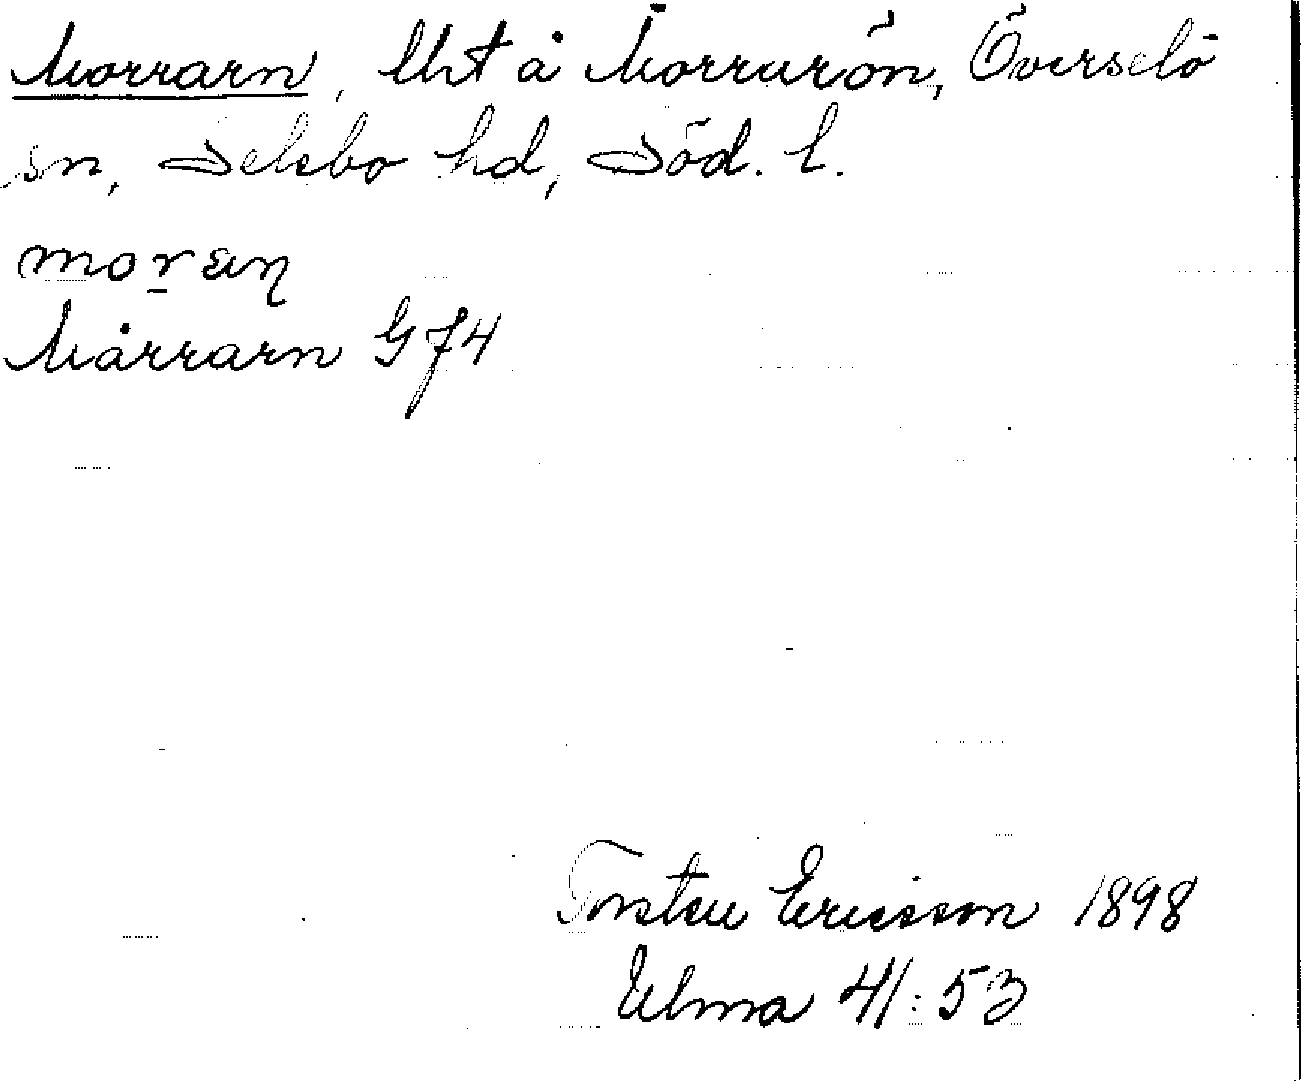 Morrarn, Uht å Morrurön, Överselö
sn, Selebo hd, Söd. l.
moræɳ
Mårrarn G 74
Torsten Ericsson 1898
Ulma 41:53